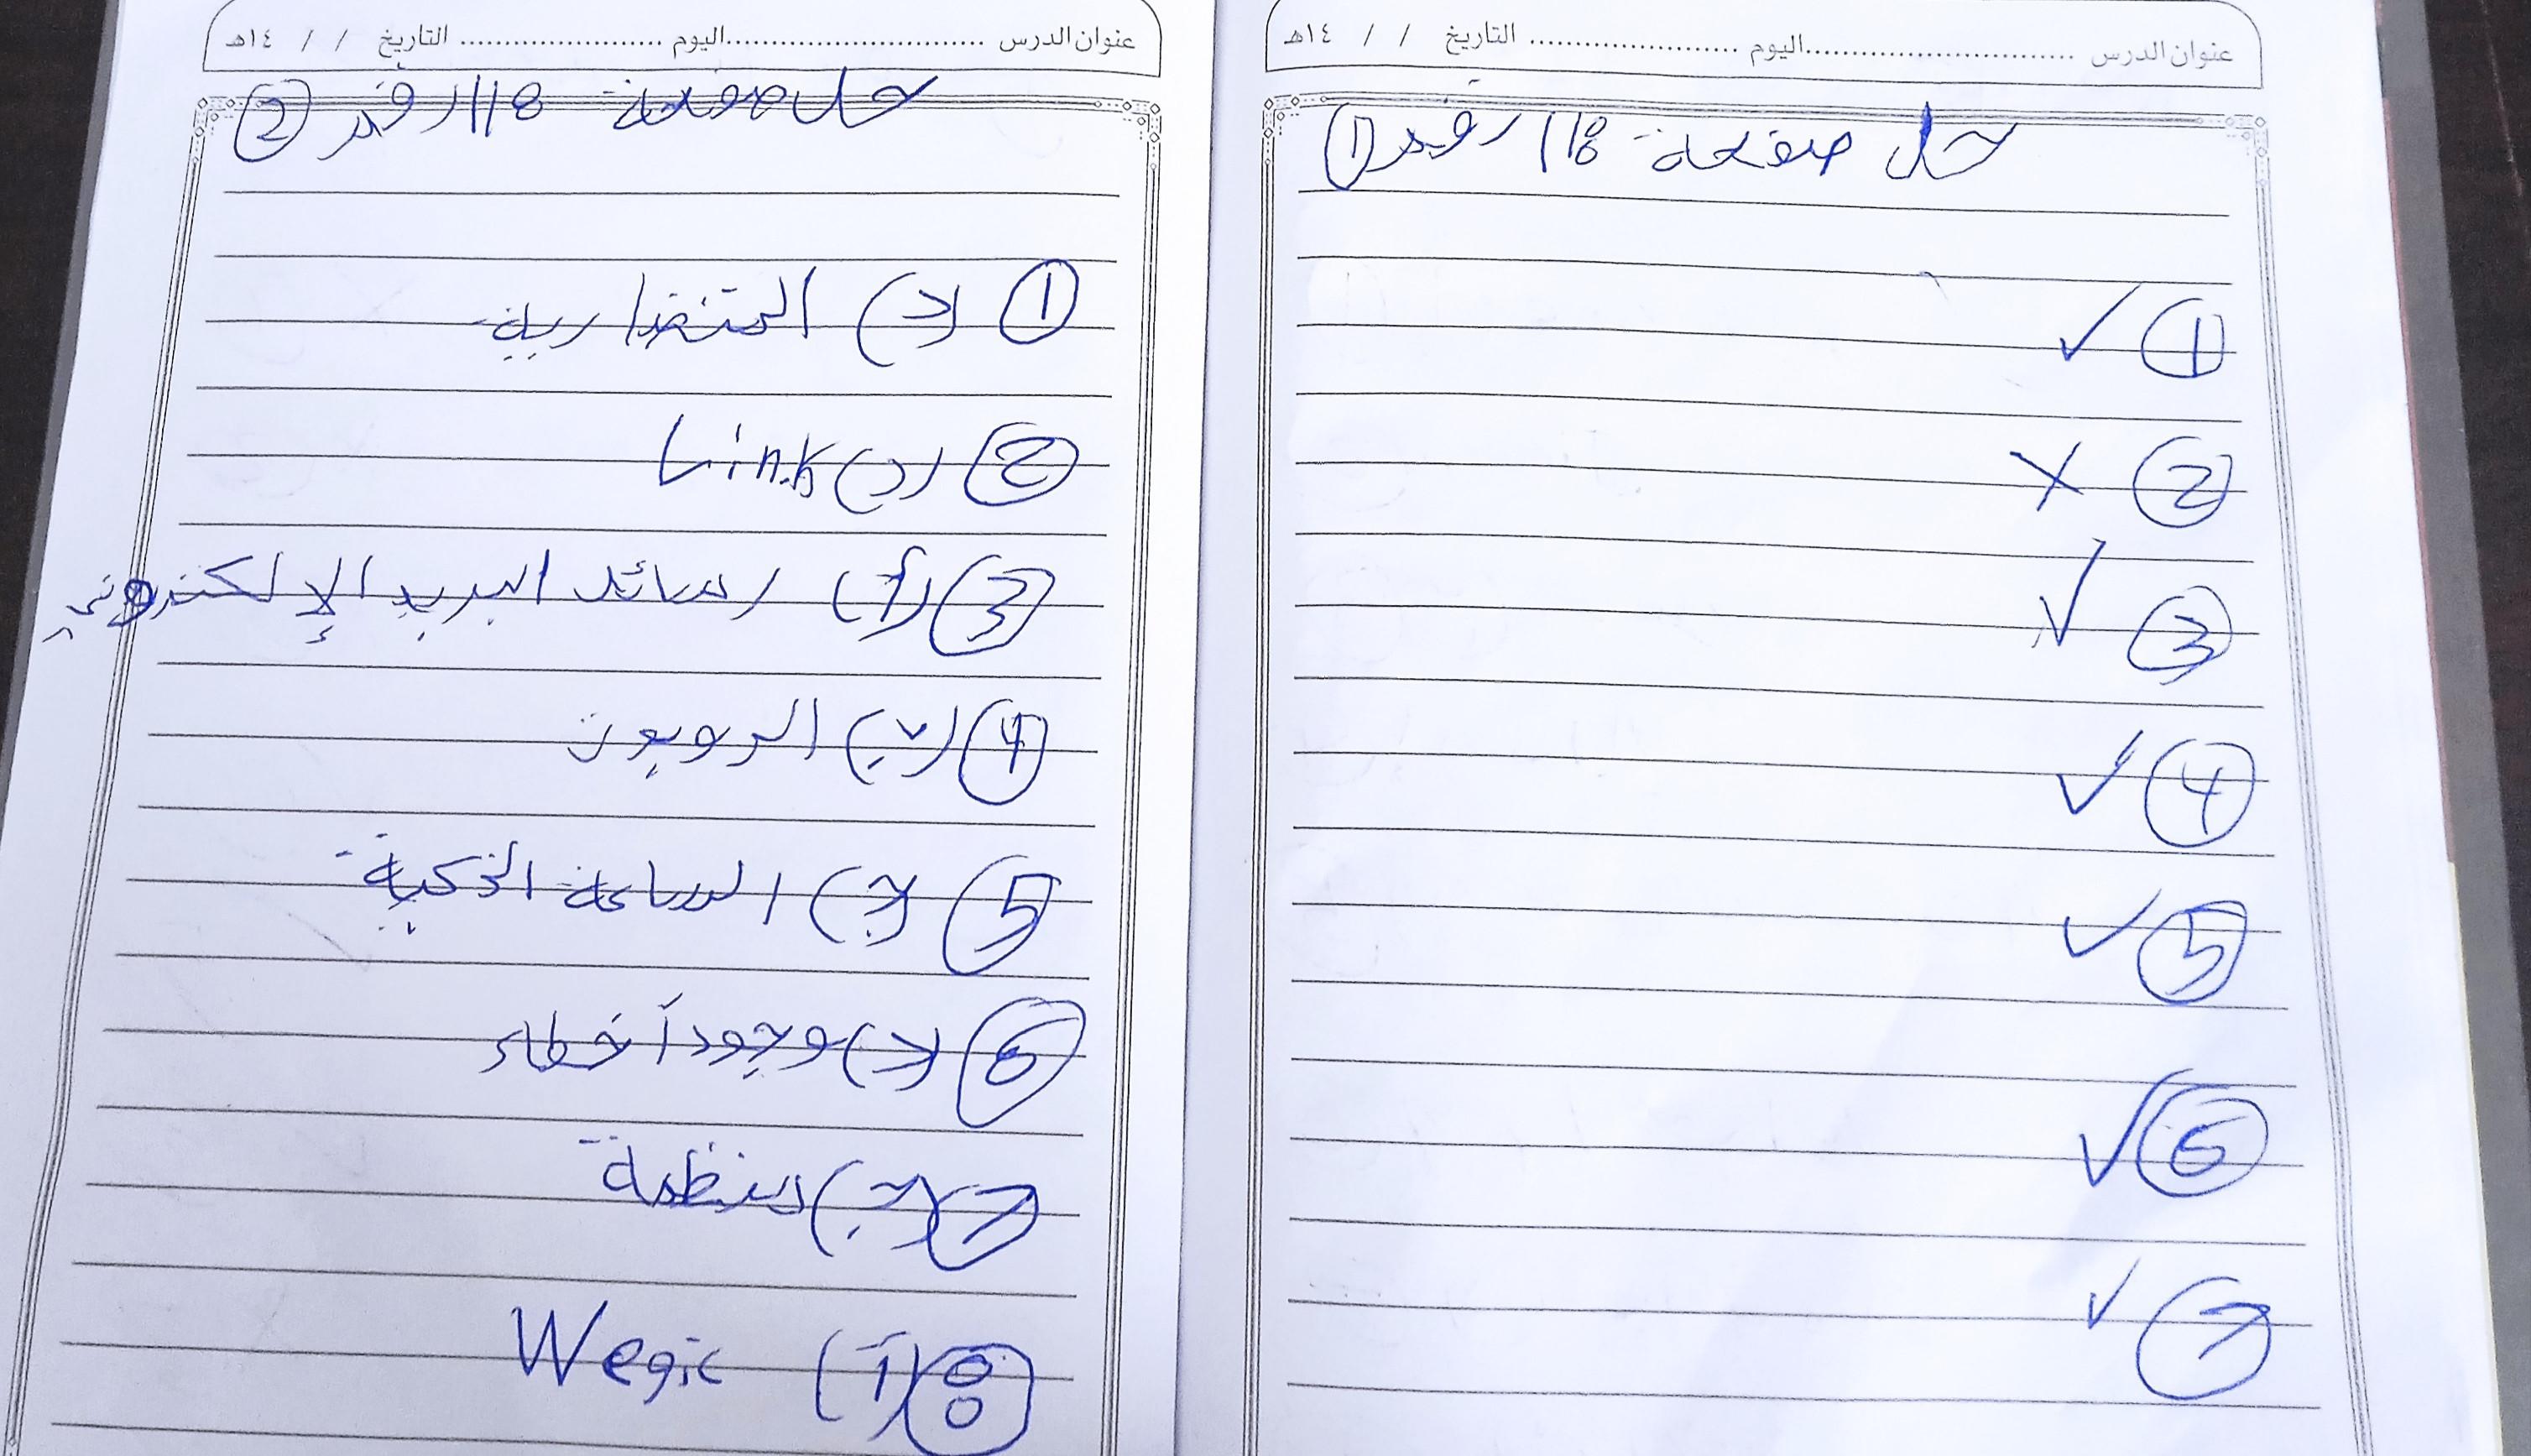 عنوان الدرس ........................... اليوم ....................... التاريخ / / ١٤هـ
حل صفحة 118 رقم ①
① ✓
② ✗
③ ✓
④ ✓
⑤ ✓
⑥ ✓
⑦ ✓
عنوان الدرس ........................... اليوم ....................... التاريخ / / ١٤هـ
حل صفحة 118 رقم ②
① (د)
② (د) Link
③ (أ) رسائل البريد الإلكتروني
④ (ب) الروبوت
⑤ (ج) الساعة الذكية
⑥ (د) وجود أخطاء
⑦ (ج)
⑧ (أ) Wegic